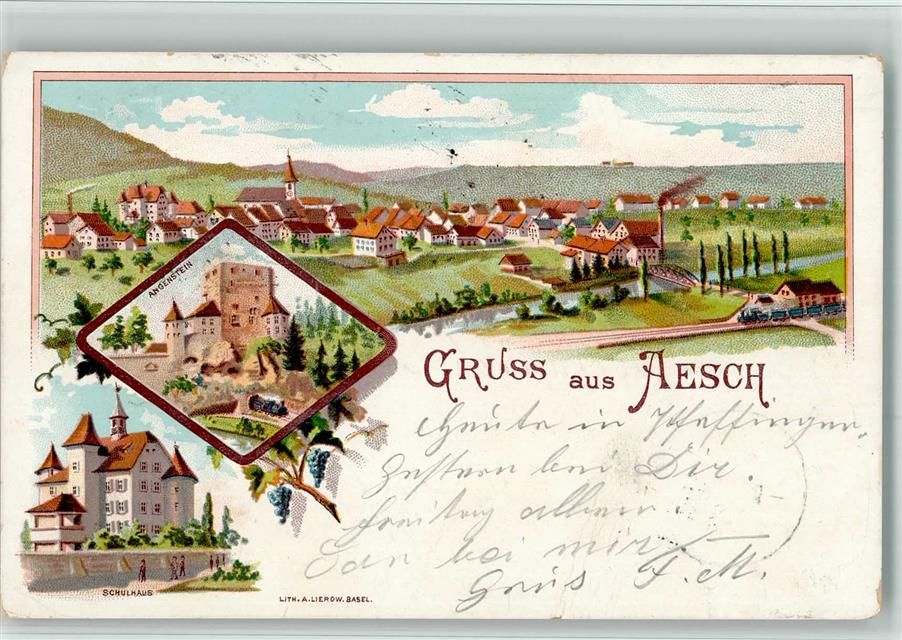 ANGENSTEIN
GRUSS AUS AESCH
Heute in Pfeffingen
bei Dir
allein
bei mir
Grüs F. M.
SCHULHAUS
LITH. A. LIEROW. BASEL.